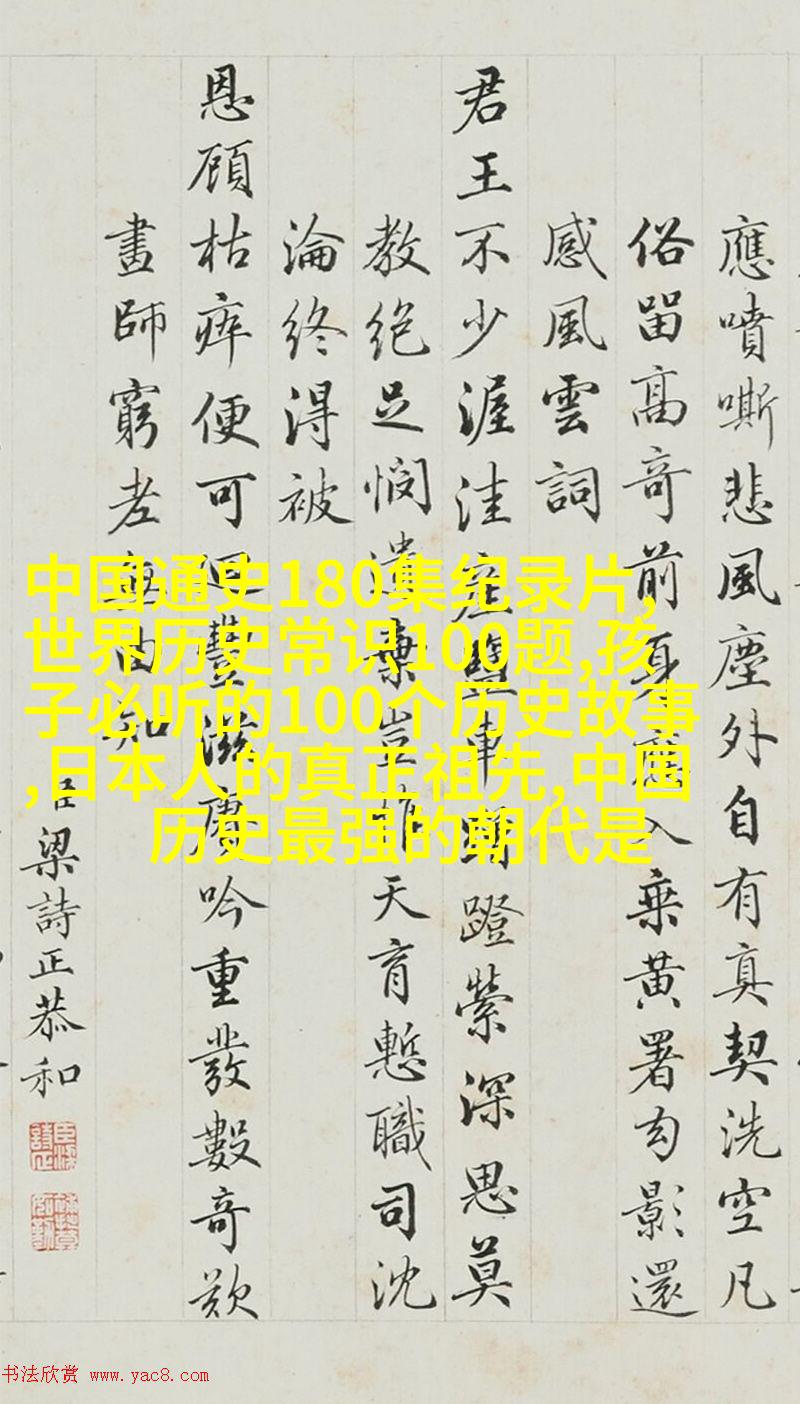 應噴嘶悲風塵外自有真契洗空凡
俗留高奇前身應入乘黃署勾影還
感風雲詞
君王不少渥洼產鹽車蹬縈深思莫
教絕足憫遺棄豈作天育慙職司沈
淪終得被
恩顧枯痺便可迴滋吟重發數奇欵
畫師窮老無由知
臣梁詩正恭和
中国通史180集纪录片,
世界历史常识100题,孩
子必听的100个历史故事
,日本人的真正祖先,中国
历史最强的朝代是
书法欣赏 www.yac8.com